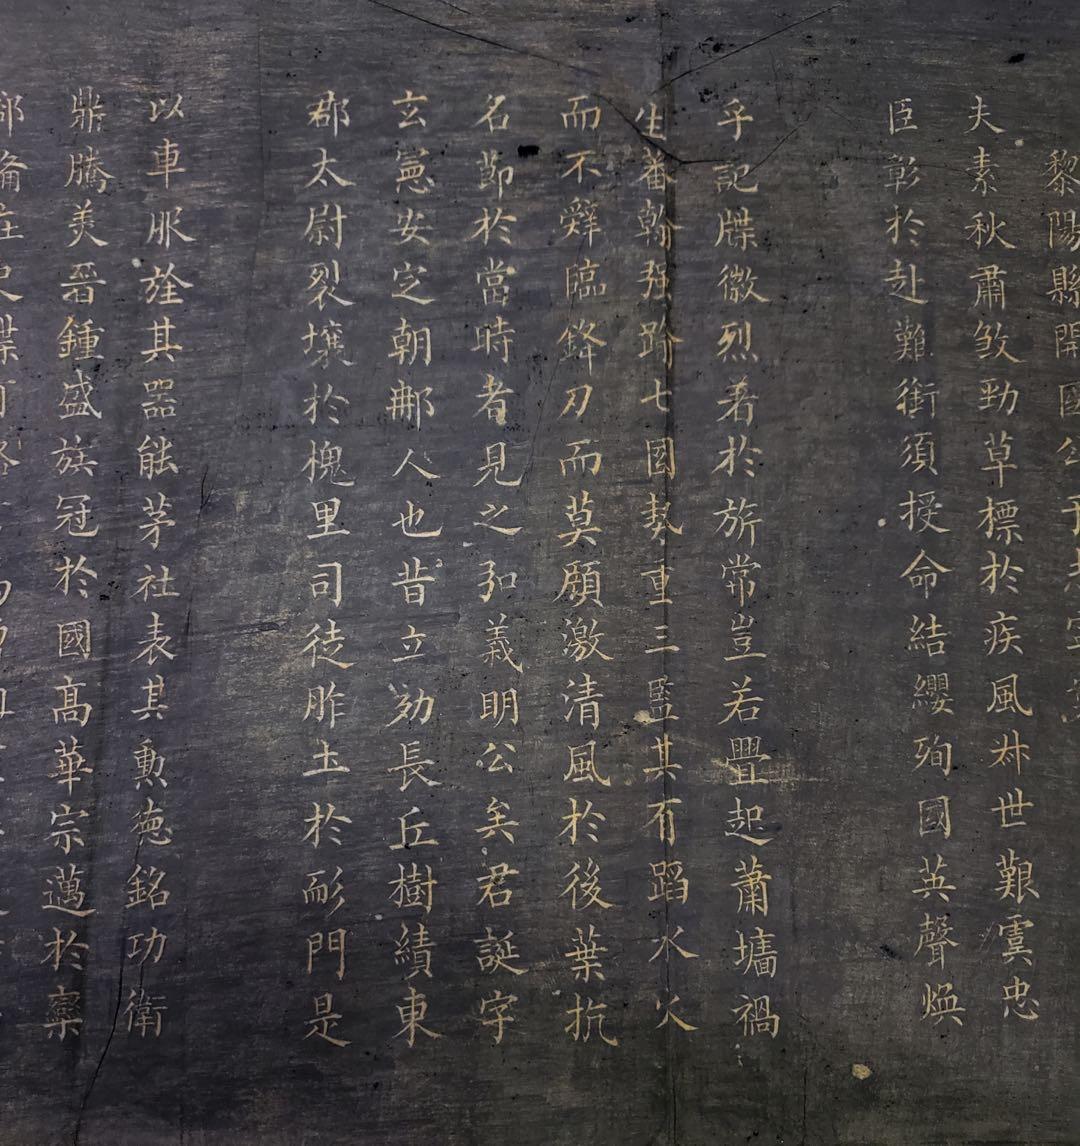 黎陽縣開國公
夫素秋肅煞勁草標於疾風叔世艱虞忠
臣彰於赴難銜須授命結纓殉國英聲煥
乎記牒徽烈著於旂常豈若舋起蕭墻禍
生蕃翰强踰七國勢重三監其有蹈水火
而不辤臨鋒刃而莫顧激清風於後葉抗
名節於當時者見之弘義明公矣君誕字
玄憲安定朝䢴人也昔立効長丘樹績東
郡太尉裂壤於槐里司徒胙土於耏門是
以車服旌其器能茅社表其勳德銘功衛
鼎騰美晉鍾盛族冠於國高華宗邁於欒
郤